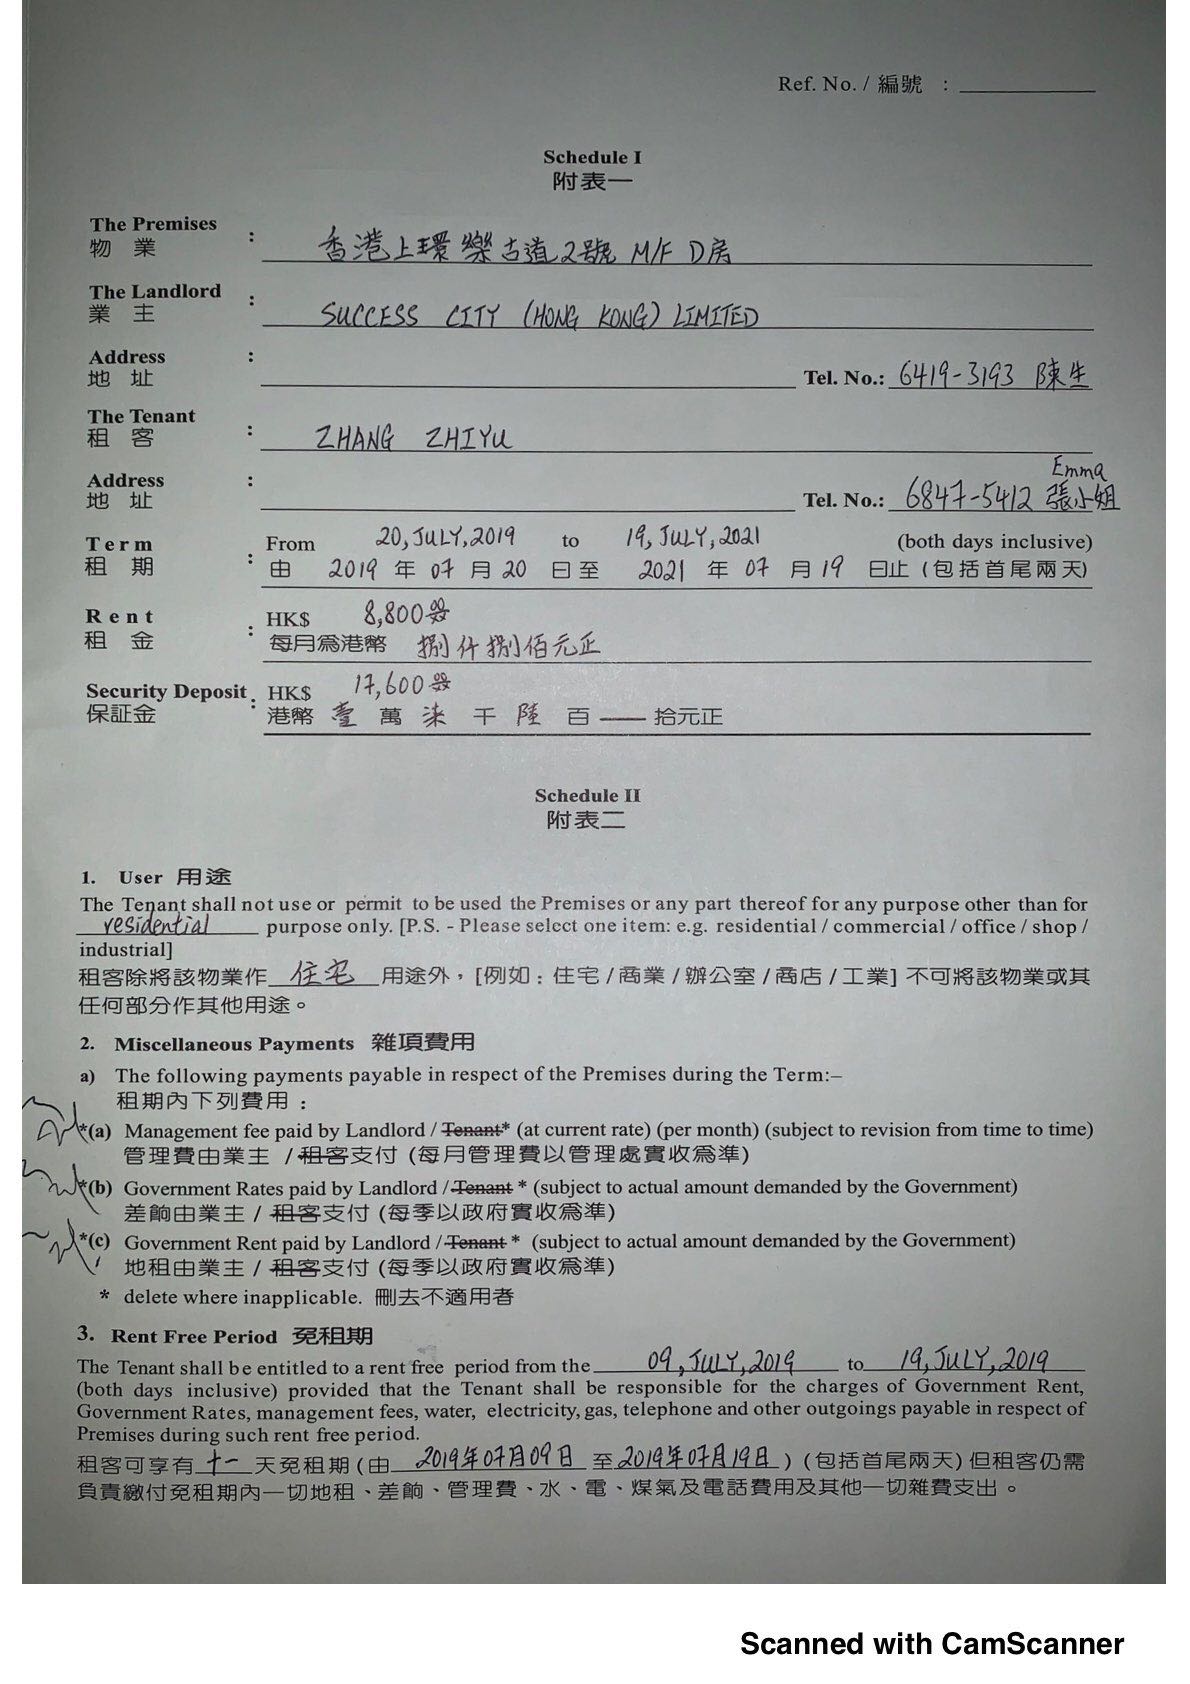 Ref. No. / 編號 :
Schedule I
附表一
The Premises
物 業 : 香港上環樂古道2號 M/F D房
The Landlord
業 主 : SUCCESS CITY (HONG KONG) LIMITED
Address
地 址 : Tel. No.: 6419-3193 陳生
The Tenant
租 客 : ZHANG ZHIYU
Emma
Address
地 址 : Tel. No.: 6847-5412 張小姐
Term From 20, JULY, 2019 to 19, JULY, 2021 (both days inclusive)
租 期 : 由 2019 年 07 月 20 日至 2021 年 07 月 19 日止 (包括首尾兩天)
Rent HK$ 8,800
租 金 : 每月為港幣 捌仟捌佰元正
Security Deposit : HK$ 17,600
保証金 港幣 壹 萬 柒 千 陸 百 — 拾元正
Schedule II
附表二
1. User 用途
The Tenant shall not use or permit to be used the Premises or any part thereof for any purpose other than for
residential purpose only. [P.S. - Please select one item: e.g. residential / commercial / office / shop /
industrial]
租客除將該物業作 住宅 用途外，[例如 : 住宅 / 商業 / 辦公室 / 商店 / 工業] 不可將該物業或其
任何部分作其他用途。
2. Miscellaneous Payments 雜項費用
a) The following payments payable in respect of the Premises during the Term:–
租期內下列費用 :
*(a) Management fee paid by Landlord / Tenant* (at current rate) (per month) (subject to revision from time to time)
管理費由業主 / 租客支付 (每月管理費以管理處實收為準)
*(b) Government Rates paid by Landlord / Tenant * (subject to actual amount demanded by the Government)
差餉由業主 / 租客支付 (每季以政府實收為準)
*(c) Government Rent paid by Landlord / Tenant * (subject to actual amount demanded by the Government)
地租由業主 / 租客支付 (每季以政府實收為準)
* delete where inapplicable. 刪去不適用者
3. Rent Free Period 免租期
The Tenant shall be entitled to a rent free period from the 09, JULY, 2019 to 19, JULY, 2019
(both days inclusive) provided that the Tenant shall be responsible for the charges of Government Rent,
Government Rates, management fees, water, electricity, gas, telephone and other outgoings payable in respect of
Premises during such rent free period.
租客可享有 十一 天免租期 (由 2019年07月09日 至 2019年07月19日 ) (包括首尾兩天) 但租客仍需
負責繳付免租期內一切地租、差餉、管理費、水、電、煤氣及電話費用及其他一切雜費支出。
Scanned with CamScanner